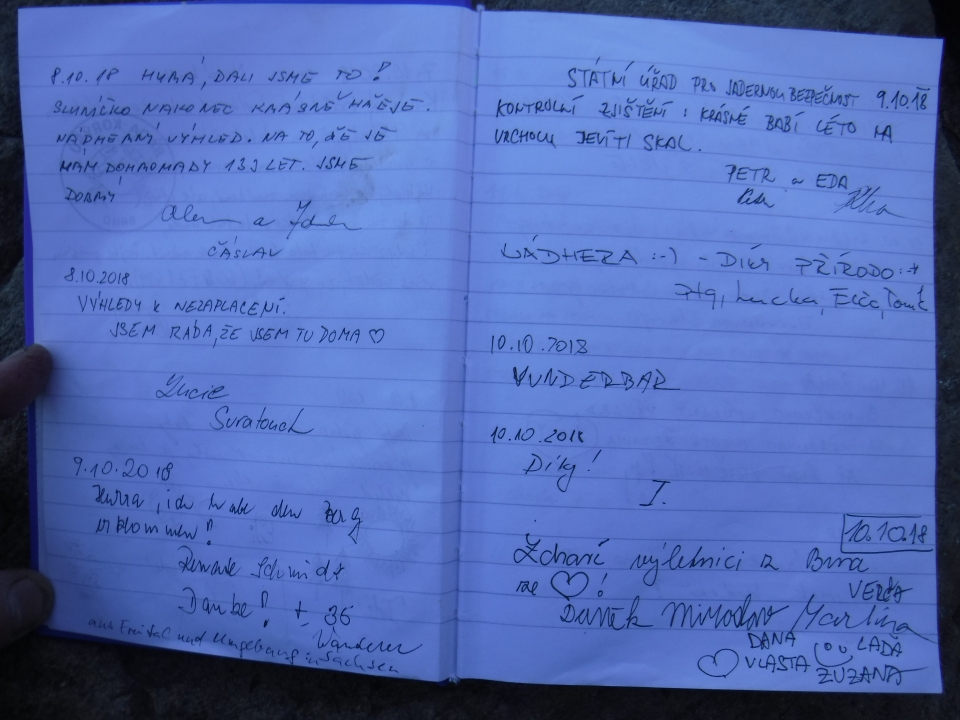 8.10.18 HURÁ, DALI JSME TO!
SLUNÍČKO NAKONEC KRÁSNĚ HŘEJE.
NÁDHERNÝ VÝHLED. NA TO, ŽE JE
NÁM DOHROMADY 133 LET. JSME
DOBRÝ
a
ČÁSLAV
8.10.2018
VÝHLEDY K NEZAPLACENÍ.
JSEM RÁDA, ŽE JSEM TU DOMA ♡
Lucie
Svratouch
9.10.2018
Hurra, ich habe den Berg
erklommen!
Renate Schmidt
Danke! ± 36
Wanderer
aus Freital und Umgebung in Sachsen
STÁTNÍ ÚŘAD PRO JADERNOU BEZPEČNOST 9.10.18
KONTROLNÍ ZJIŠTĚNÍ: KRÁSNÉ BABÍ LÉTO NA
VRCHOLU DEVÍTI SKAL.
PETR a EDA
NÁDHERA :-) - DÍKY PŘÍRODO :-*
Lucka,
10.10.2018
WUNDERBAR
10.10.2018
Díky!
I.
10.10.18
Zdraví výletníci z Brna
ze ♡!
VERČA
Daněk Miroslav Martina
DANA LAĎA
♡ VLASTA ZUZANA